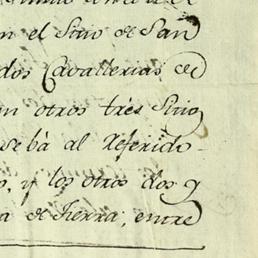 en el Sitio de San
dos Cavallerias de
en otros tres Sitio
se bà al referido
o, y los otros dos y
a de Tierra, entre